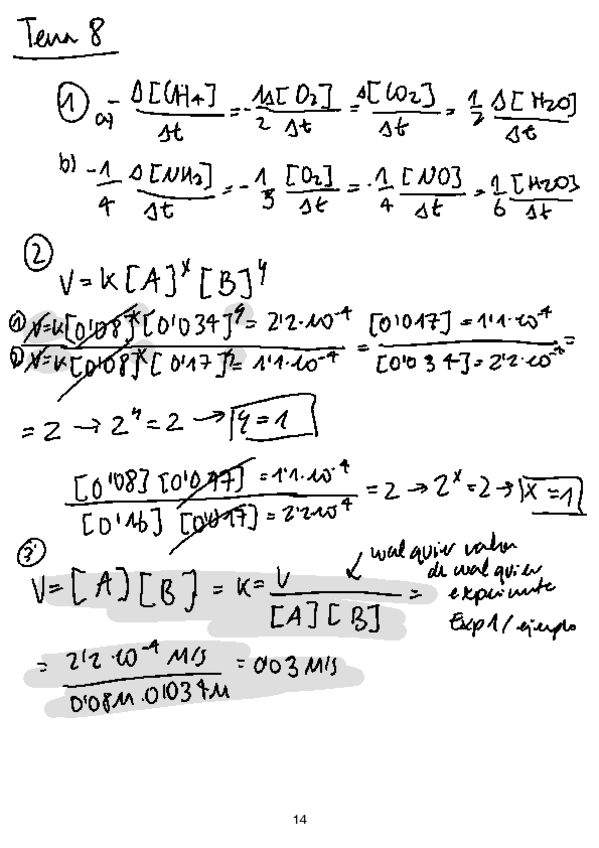 Tema 8
① a) - Δ[CH4]/Δt = - 1/2 Δ[O2]/Δt = Δ[CO2]/Δt = 1/2 Δ[H2O]/Δt
b) - 1/4 Δ[NH3]/Δt = - 1/3 [O2]/Δt = - 1/4 [NO]/Δt = 1/6 [H2O]/Δt
②
V = K [A]^x [B]^y
① V=K[0'08]^x [0'034]^y = 2'2·10^-4
② V=K[0'08]^x [0'17]^y = 1'1·10^-4 = [0'017] = 1'1·10^-4 / [0'034] = 2'2·10^-4 =
= 2 → 2^y = 2 → y = 1
[0'08] [0'017] = 1'1·10^-4 / [0'16] [0'017] = 2'2·10^-4 = 2 → 2^x = 2 → x = 1
③
V = [A] [B] = K = V / [A] [B] =
cualquier valor
de cualquier
experimento
Exp 1 / ejemplo
= 2'2·10^-4 M/s / 0'08M · 0'034M = 0'03 M/s
14